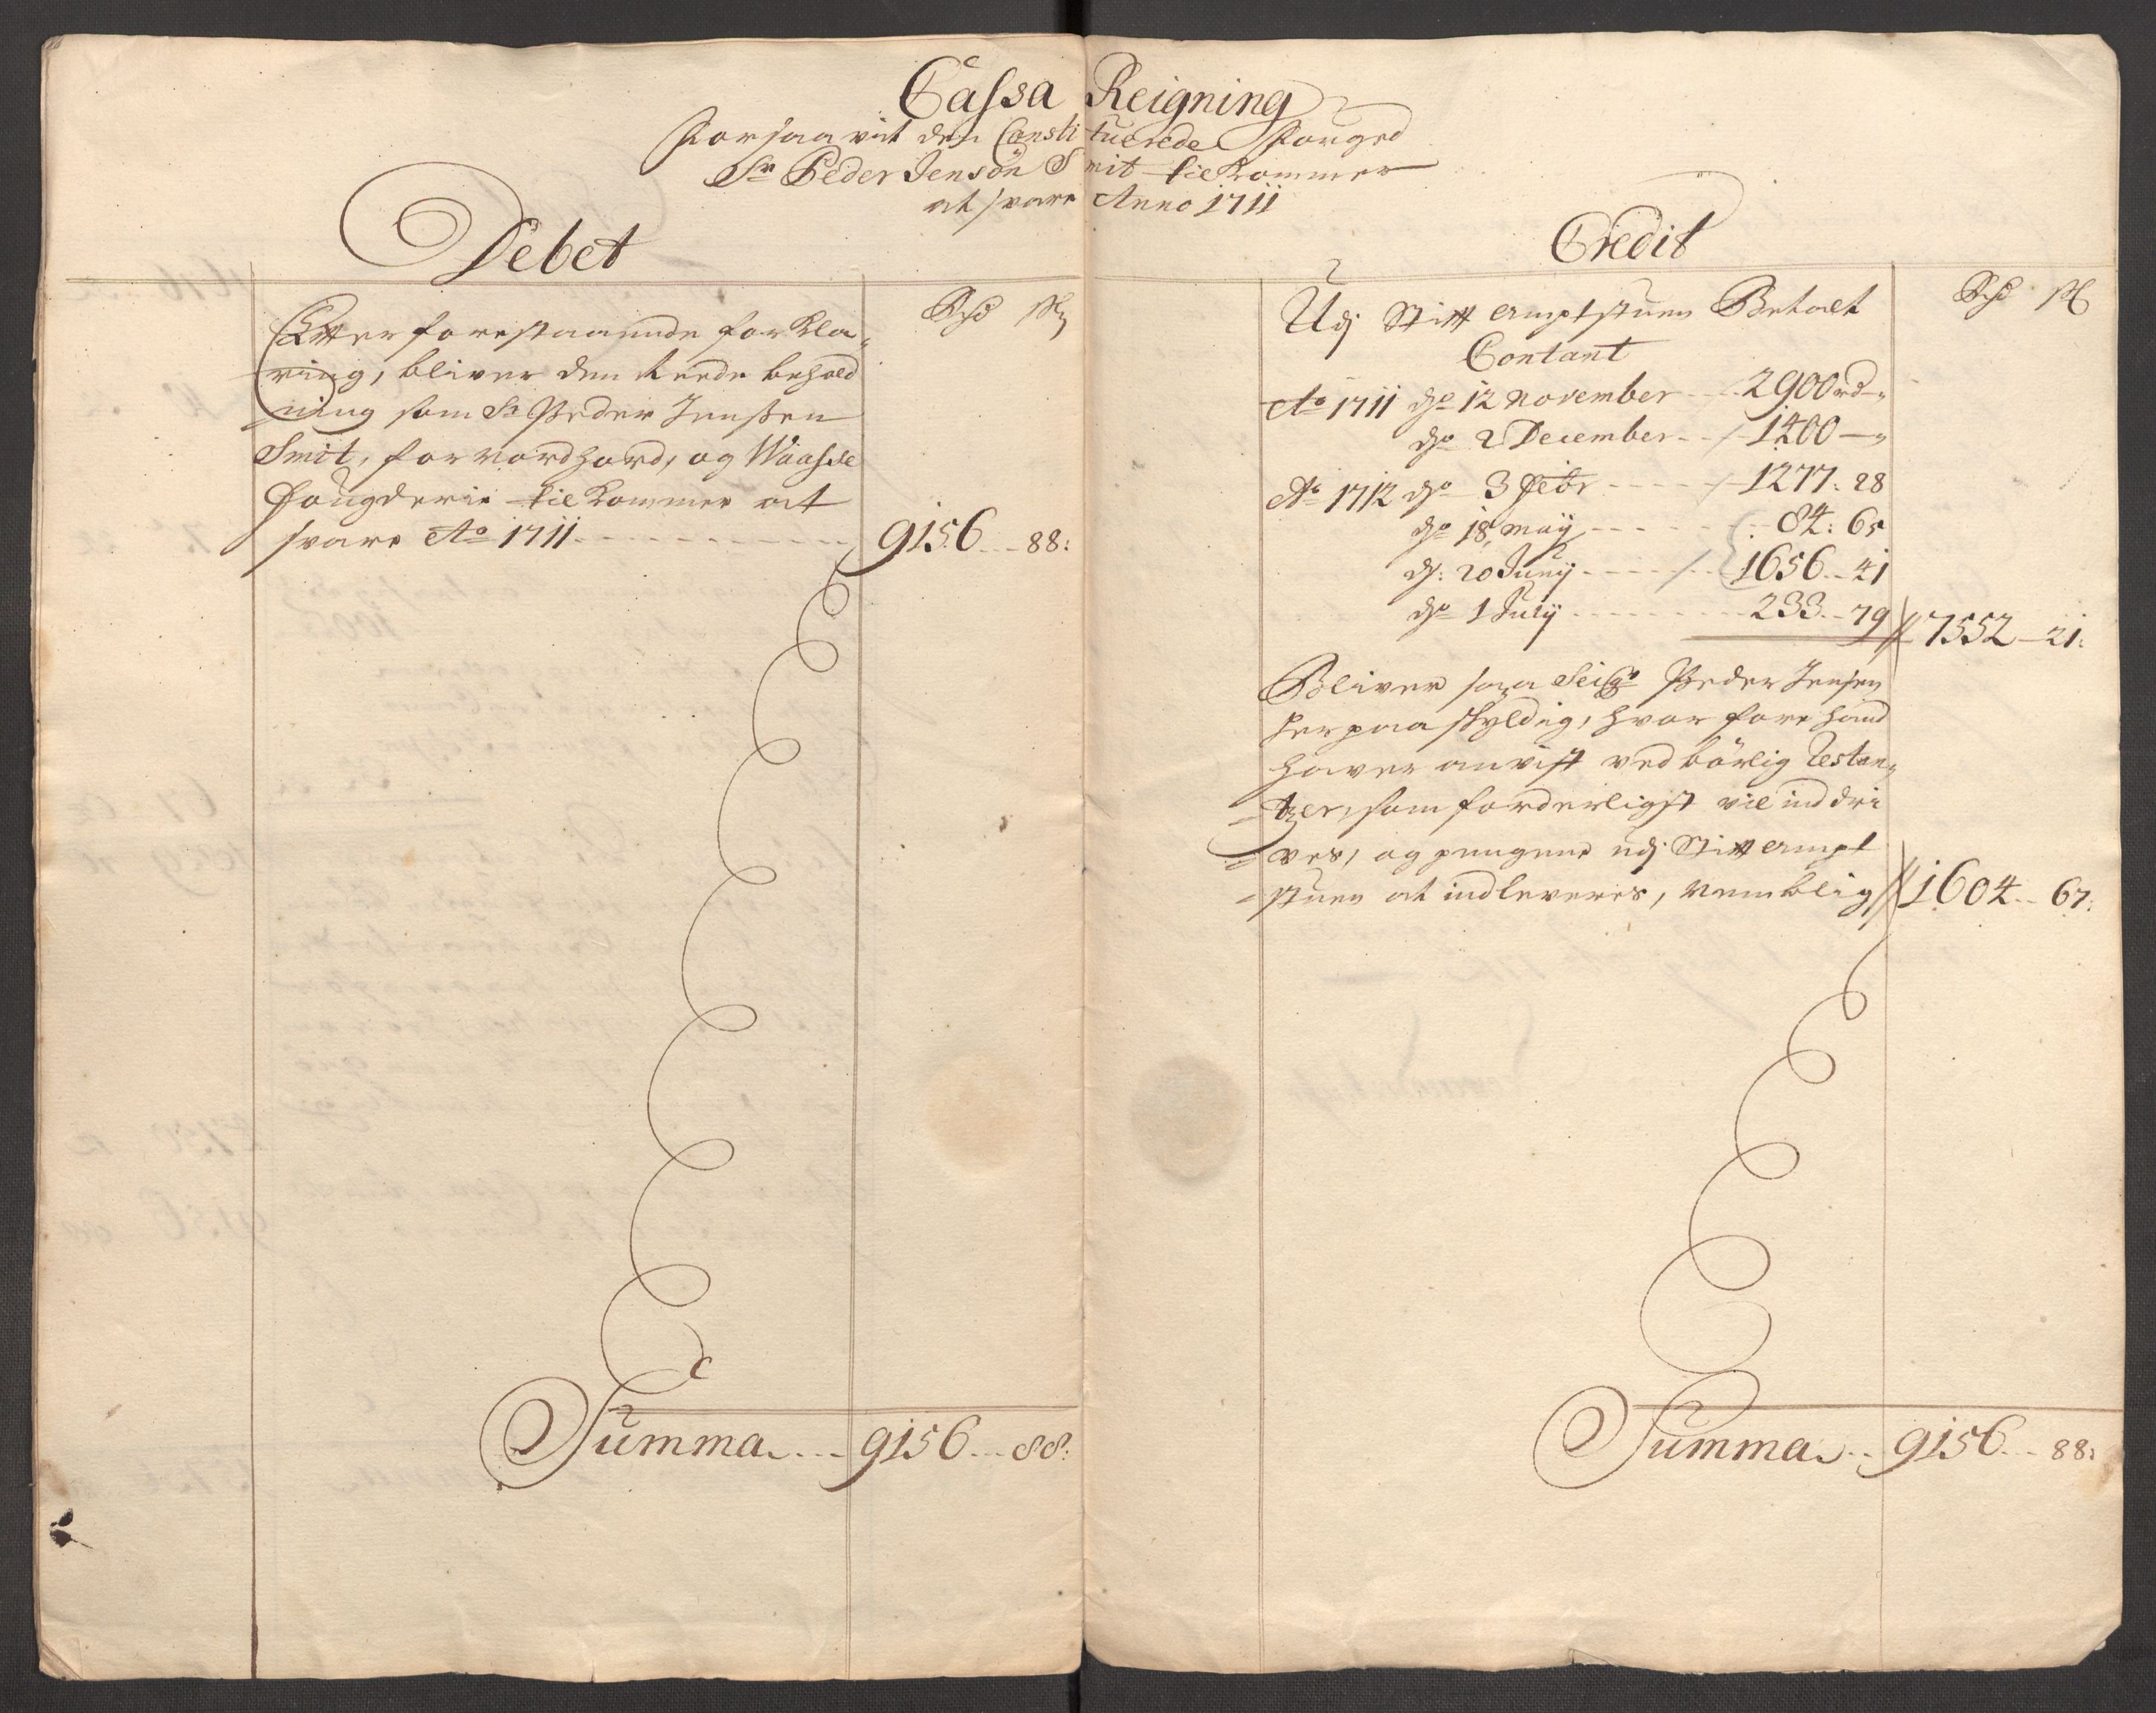 Cassa Reigning
Forsaavit den Constituerede Fouged
Sr Peder Jensön Smit tilkommer
at svare Anno 1711
Debet
Rdr ß
Efter forestaaende forkla„
ring, bliver den Reede behold
ning som Sr Peder Jenssen
Smit, for Nordhord, og Waasse
Fougderie tilkommer at
svare Ao 1711 9156 88:
Summa 9156 88:
Credit
Rdr ß
Udj Stift Amptstuen Betalt
Contant
Ao 1711 dn 12 November 2900 rd „
dn 2 December 1400 „
Ao 1712 dn 3 Febr 1277. 28
dn 18 may 84: 65
d: 20 Junij 1656 41
dn 1 Julij 233 79 7552 21:
Bliver saa Seigr Peder Jensen
herpaa skyldig, hvorfore hand
haver anvist ved börlig Restan„
tzer, som forderligst vil inddri
ves, og pengene udj Stift Ampt
stuen at indleveres, Nemblig 1604 67:
Summa 9156 88: